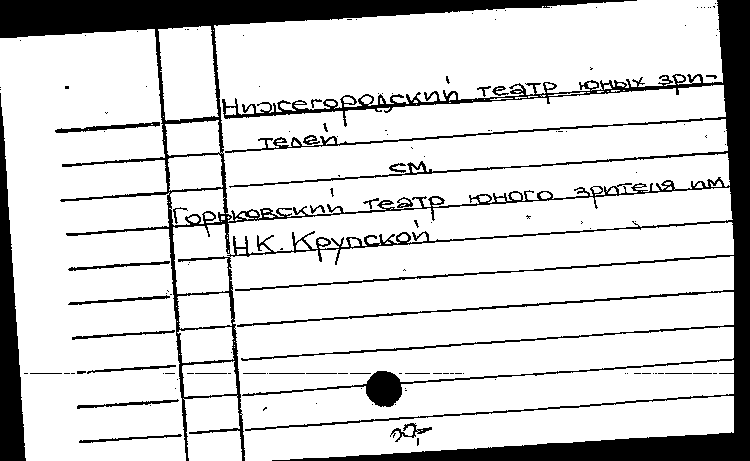 Нижегородский театр юных зри-
телей.
см.
Горьковский театр юного зрителя им.
Н.К. Крупской